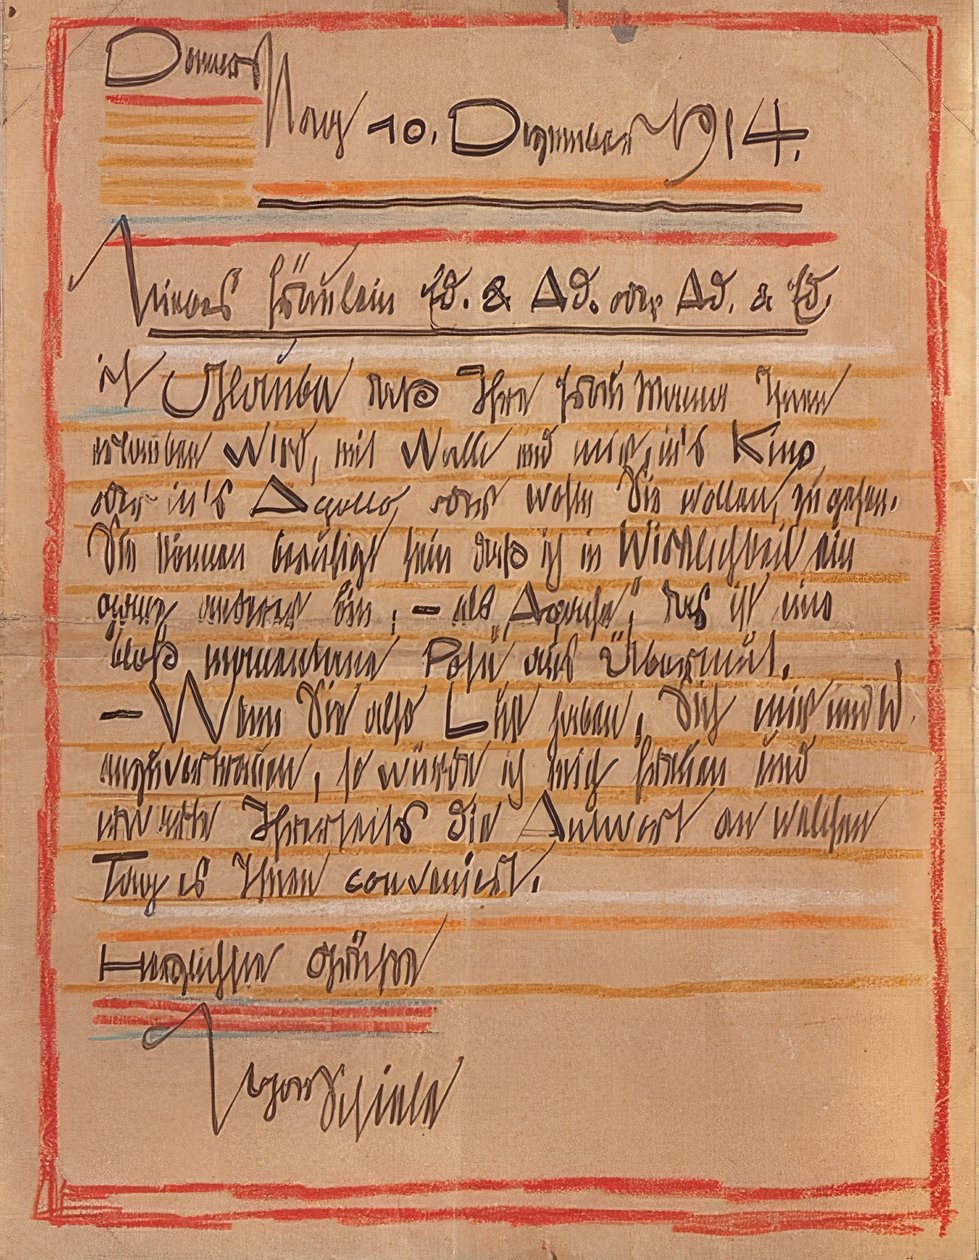 Donners
Tag 10. Dezember 1914.
Liebes Fräulein Ed. & Ad. oder Ad. & Ed.
ich Glaube daß Ihre Frau Mama Ihnen
erlauben Wird, mit Walli und mir in's Kino
oder in's Apollo, oder wohin Sie wollen, zu gehen.
Sie können beruhigt sein daß ich in Wirklichkeit ein
ganz anderer bin, – als „Apache", das ist eine
bloß momentane Pose aus Übermut.
– Wenn Sie also Lust haben, Sich mir und W.
anzuvertrauen, so würde ich mich freuen und
erwarte Ihrerseits die Antwort an welchen
Tag es Ihnen conveniert.
Herzlichste Grüße
Egon Schiele